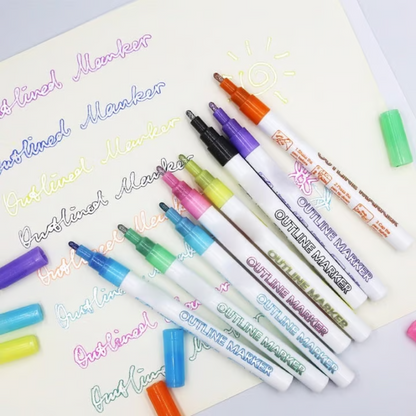 Outlined Marker
Outlined Marker
Outlined Marker
Outlined Marker
Outlined
Outlined
Outlined
Outlined
OUTLINE MARKER
OUTLINE MARKER
OUTLINE MARKER
OUTLINE MARKER
OUTLINE MARKER
OUTLINE MARKER
OUTLINE MARKER
OUTLINE MARKER